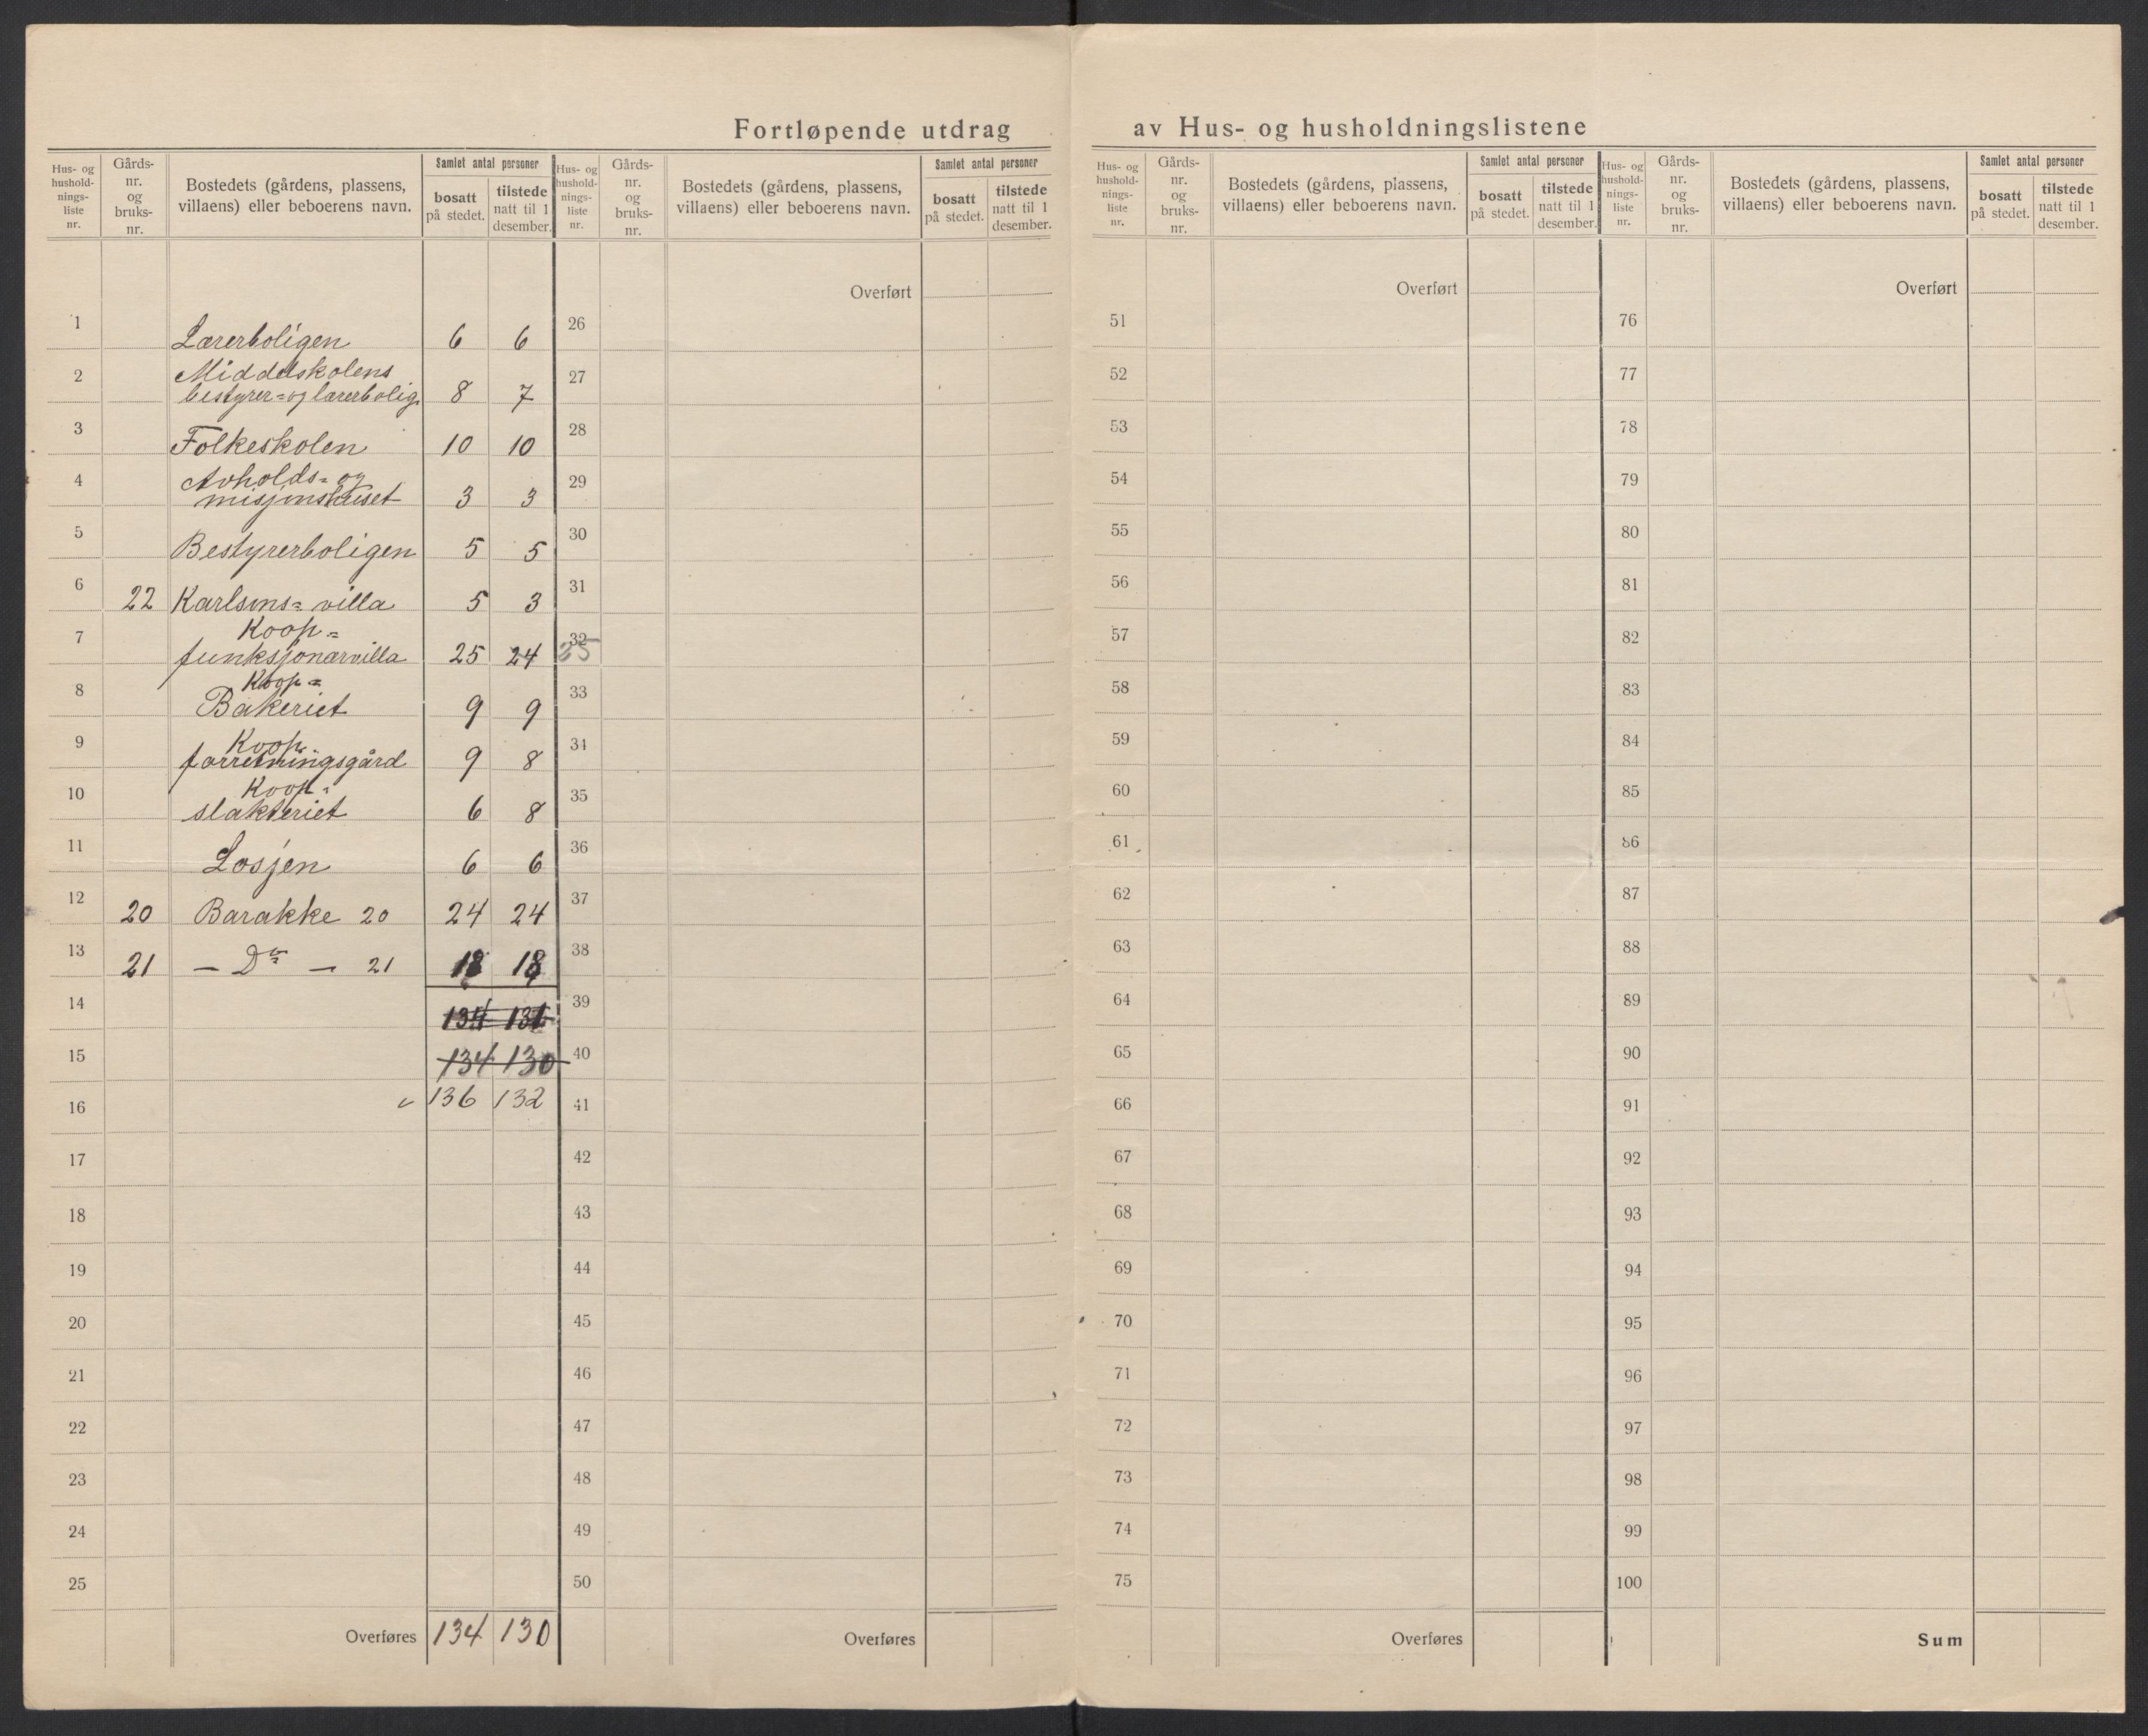 Fortløpende utdrag av Hus- og husholdningslistene
Hus- og hushold-nings-liste nr. Gårds-nr. og bruks-nr. Bostedets (gårdens, plassens, villaens) eller beboerens navn. Samlet antal personer bosatt på stedet. tilstede natt til 1 desember.
1 Lærerboligen 6 6
2 Middelskolens
bestyrer= og lærerbolig. 8 7
3 Folkeskolen 10 10
4 Avholds= og
misjonshuset 3 3
5 Bestyrerboligen 5 5
6 22 Karlsons= villa 5 3
7 Koop=
funksjonærvilla 25 24
8 Koop=
Bakeriet 9 9
9 Koop.
forretningsgård 9 8
10 Koop=
slakteriet 6 8
11 Losjen 6 6
12 20 Barakke 20 24 24
13 21 — Do — 21 18 18
14 134 131
15 134 130
16 136 132
17
18
19
20
21
22
23
24
25
Overføres 134 130
Hus- og hushold-nings-liste nr. Gårds-nr. og bruks-nr. Bostedets (gårdens, plassens, villaens) eller beboerens navn. Samlet antal personer bosatt på stedet. tilstede natt til 1 desember.
Overført
26
27
28
29
30
31
32
25
33
34
35
36
37
38
39
40
41
42
43
44
45
46
47
48
49
50
Overføres
Hus- og hushold-nings-liste nr. Gårds-nr. og bruks-nr. Bostedets (gårdens, plassens, villaens) eller beboerens navn. Samlet antal personer bosatt på stedet. tilstede natt til 1 desember.
Overført
51
52
53
54
55
56
57
58
59
60
61
62
63
64
65
66
67
68
69
70
71
72
73
74
75
Overføres
Hus- og hushold-nings-liste nr. Gårds-nr. og bruks-nr. Bostedets (gårdens, plassens, villaens) eller beboerens navn. Samlet antal personer bosatt på stedet. tilstede natt til 1 desember.
Overført
76
77
78
79
80
81
82
83
84
85
86
87
88
89
90
91
92
93
94
95
96
97
98
99
100
Sum